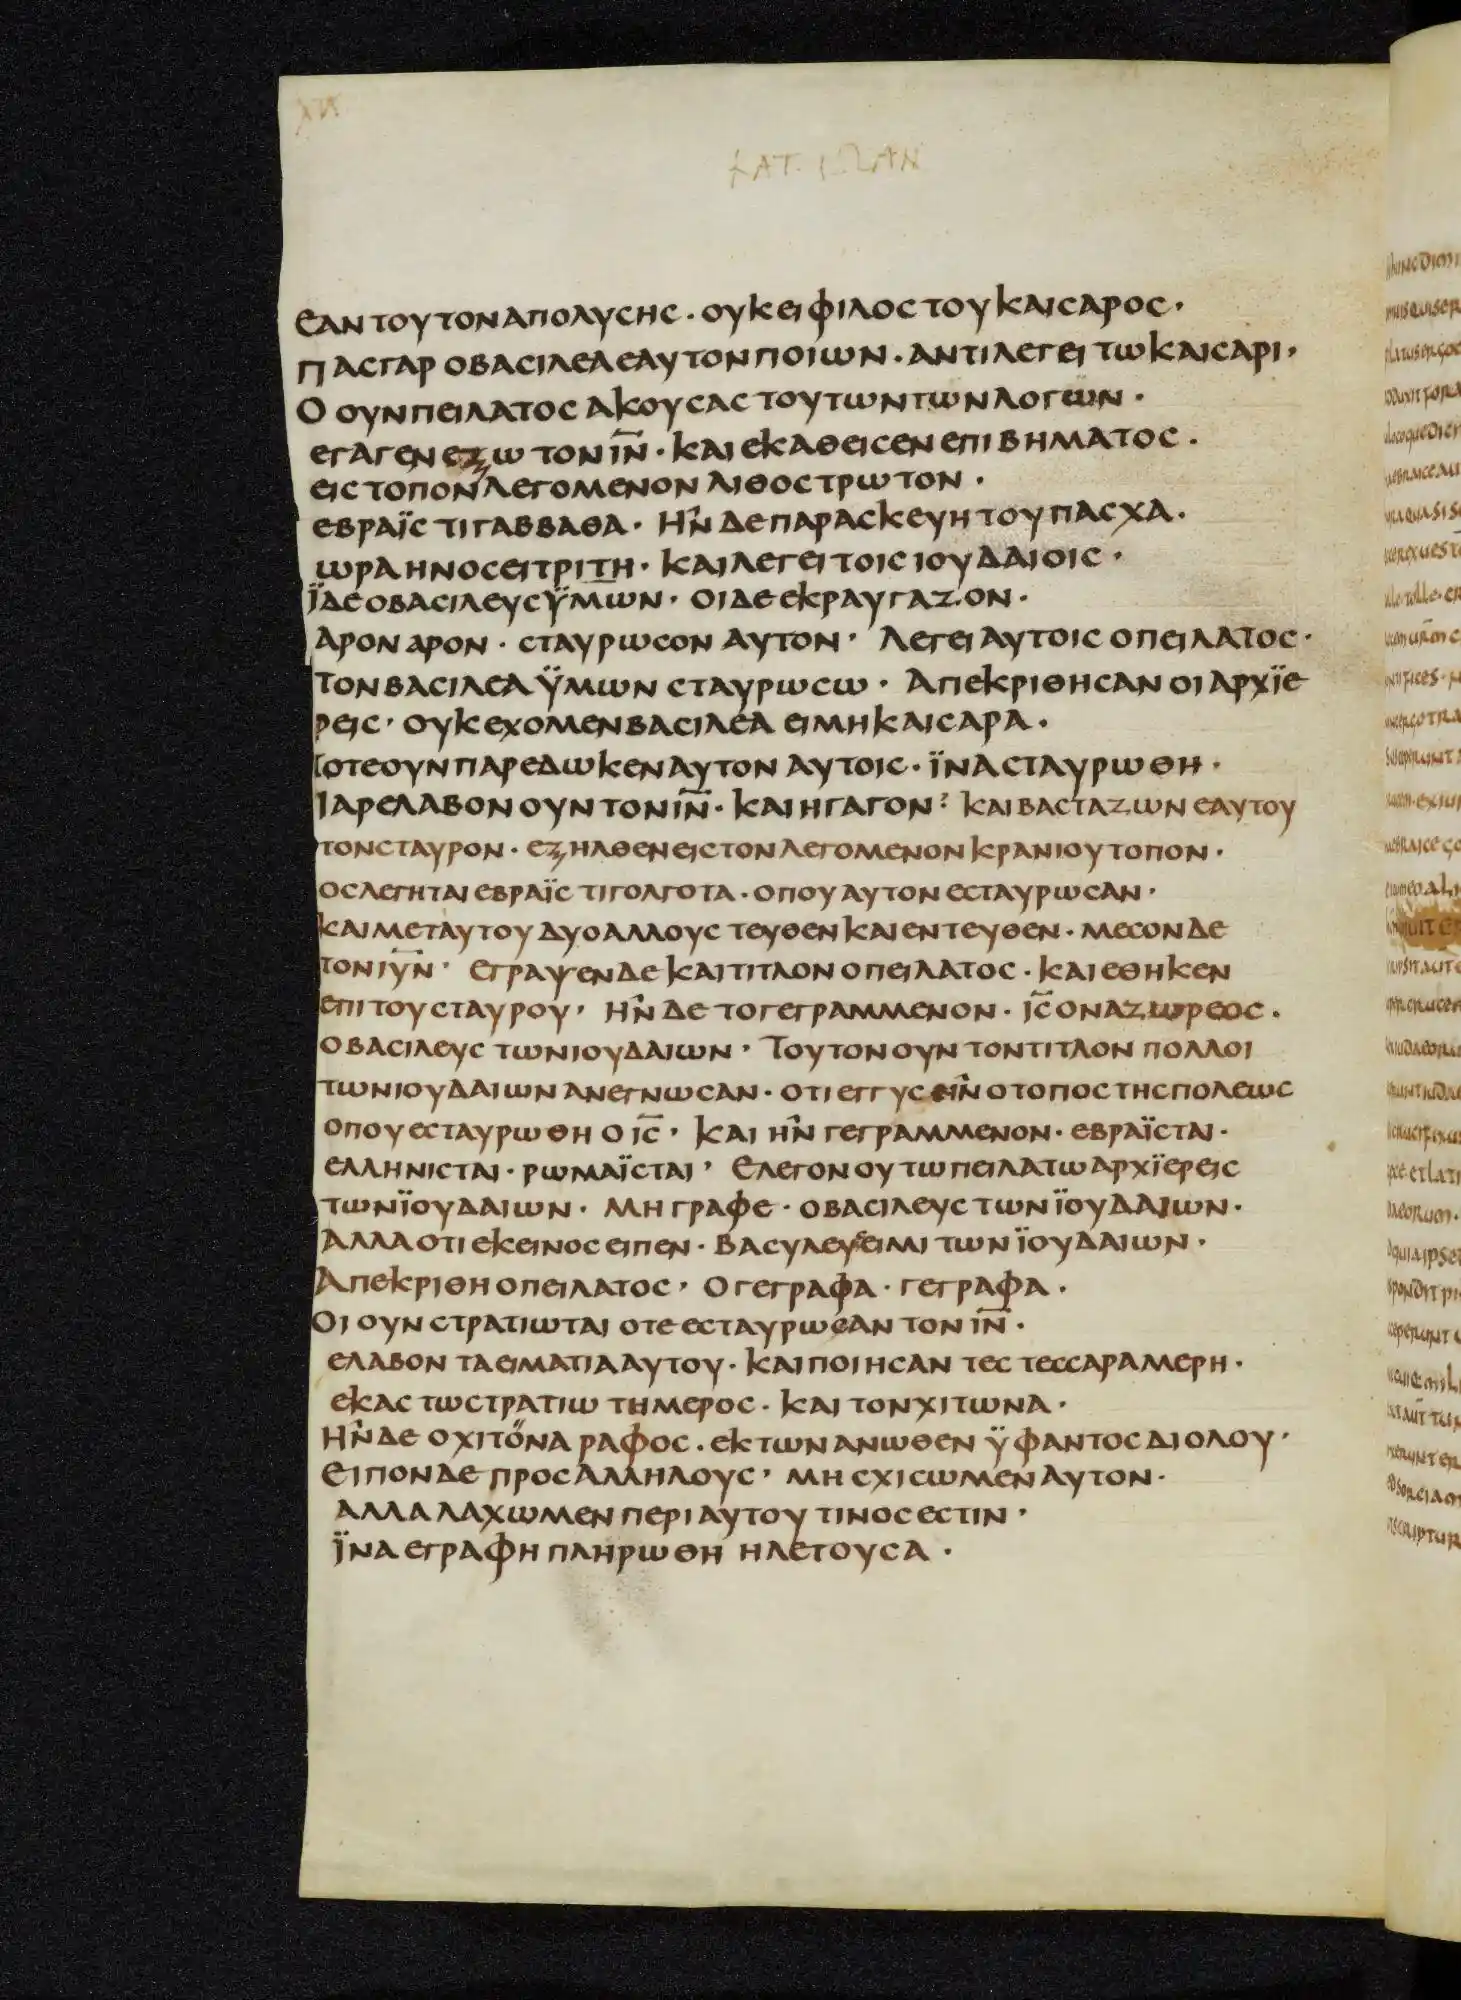 ΚΑΤ· ΙΩΑΝ
ΕΑΝ ΤΟΥΤΟΝ ΑΠΟΛΥСΗС · ΟΥΚ ΕΙ ΦΙΛΟС ΤΟΥ ΚΑΙСΑΡΟС ·
ΠΑС ΓΑΡ Ο ΒΑСΙΛΕΑ ΕΑΥΤΟΝ ΠΟΙΩΝ · ΑΝΤΙΛΕΓΕΙ ΤΩ ΚΑΙСΑΡΙ ·
Ο ΟΥΝ ΠΕΙΛΑΤΟС ΑΚΟΥСΑС ΤΟΥΤΩΝ ΤΩΝ ΛΟΓΩΝ ·
ΕΓΑΓΕΝ ΕΞΩ ΤΟΝ ΙΝ̅ · ΚΑΙ ΕΚΑΘΕΙСΕΝ ΕΠΙ ΒΗΜΑΤΟС ·
ΕΙС ΤΟΠΟΝ ΛΕΓΟΜΕΝΟΝ ΛΙΘΟСΤΡΩΤΟΝ ·
ΕΒΡΑΪСΤΙ ΓΑΒΒΑΘΑ · ΗΝ ΔΕ ΠΑΡΑСΚΕΥΗ ΤΟΥ ΠΑСΧΑ ·
ΩΡΑ ΗΝ ΟСΕΙ ΤΡΙΤΗ · ΚΑΙ ΛΕΓΕΙ ΤΟΙС ΙΟΥΔΑΙΟΙС ·
ΪΔΕ Ο ΒΑСΙΛΕΥС ΫΜΩΝ · ΟΙ ΔΕ ΕΚΡΑΥΓΑΖΟΝ ·
ΑΡΟΝ ΑΡΟΝ · СΤΑΥΡΩСΟΝ ΑΥΤΟΝ · ΛΕΓΕΙ ΑΥΤΟΙС Ο ΠΕΙΛΑΤΟС ·
ΤΟΝ ΒΑСΙΛΕΑ ΫΜΩΝ СΤΑΥΡΩСΩ · ΑΠΕΚΡΙΘΗСΑΝ ΟΙ ΑΡΧΪΕ
ΡΕΙС · ΟΥΚ ΕΧΟΜΕΝ ΒΑСΙΛΕΑ ΕΙ ΜΗ ΚΑΙСΑΡΑ ·
ΤΟΤΕ ΟΥΝ ΠΑΡΕΔΩΚΕΝ ΑΥΤΟΝ ΑΥΤΟΙС · ΪΝΑ СΤΑΥΡΩΘΗ ·
ΠΑΡΕΛΑΒΟΝ ΟΥΝ ΤΟΝ ΙΝ̅ · ΚΑΙ ΗΓΑΓΟΝ : ΚΑΙ ΒΑСΤΑΖΩΝ ΕΑΥΤΟΥ
ΤΟΝ СΤΑΥΡΟΝ · ΕΞΗΛΘΕΝ ΕΙС ΤΟΝ ΛΕΓΟΜΕΝΟΝ ΚΡΑΝΙΟΥ ΤΟΠΟΝ ·
ΟС ΛΕΓΗΤΑΙ ΕΒΡΑΪСΤΙ ΓΟΛΓΟΤΑ · ΟΠΟΥ ΑΥΤΟΝ ΕСΤΑΥΡΩСΑΝ ·
ΚΑΙ ΜΕΤ ΑΥΤΟΥ ΔΥΟ ΑΛΛΟΥС ΤΕΥΘΕΝ ΚΑΙ ΕΝΤΕΥΘΕΝ · ΜΕСΟΝ ΔΕ
ΤΟΝ ΙΥΝ̅ · ΕΓΡΑΨΕΝ ΔΕ ΚΑΙ ΤΙΤΛΟΝ Ο ΠΕΙΛΑΤΟС · ΚΑΙ ΕΘΗΚΕΝ
ΕΠΙ ΤΟΥ СΤΑΥΡΟΥ · ΗΝ ΔΕ ΤΟ ΓΕΓΡΑΜΜΕΝΟΝ · ΙС̅ Ο ΝΑΖΩΡΕΟС ·
Ο ΒΑСΙΛΕΥС ΤΩΝ ΙΟΥΔΑΙΩΝ · ΤΟΥΤΟΝ ΟΥΝ ΤΟΝ ΤΙΤΛΟΝ ΠΟΛΛΟΙ
ΤΩΝ ΙΟΥΔΑΙΩΝ ΑΝΕΓΝΩСΑΝ · ΟΤΙ ΕΓΓΥС ΗΝ Ο ΤΟΠΟС ΤΗС ΠΟΛΕΩС
ΟΠΟΥ ΕСΤΑΥΡΩΘΗ Ο ΙС̅ · ΚΑΙ ΗΝ ΓΕΓΡΑΜΜΕΝΟΝ · ΕΒΡΑΪСΤΑΙ ·
ΕΛΛΗΝΙСΤΑΙ · ΡΩΜΑΪСΤΑΙ · ΕΛΕΓΟΝ ΟΥ ΤΩ ΠΕΙΛΑΤΩ ΑΡΧΪΕΡΕΙС
ΤΩΝ ΪΟΥΔΑΙΩΝ · ΜΗ ΓΡΑΦΕ · Ο ΒΑСΙΛΕΥС ΤΩΝ ΪΟΥΔΑΙΩΝ ·
ΑΛΛΑ ΟΤΙ ΕΚΕΙΝΟС ΕΙΠΕΝ · ΒΑСΥΛΕΥС ΕΙΜΙ ΤΩΝ ΪΟΥΔΑΙΩΝ ·
ΑΠΕΚΡΙΘΗ Ο ΠΕΙΛΑΤΟС · Ο ΓΕΓΡΑΦΑ · ΓΕΓΡΑΦΑ ·
ΟΙ ΟΥΝ СΤΡΑΤΙΩΤΑΙ ΟΤΕ ΕСΤΑΥΡΩСΑΝ ΤΟΝ ΙΝ̅ ·
ΕΛΑΒΟΝ ΤΑ ΕΙΜΑΤΙΑ ΑΥΤΟΥ · ΚΑΙ ΠΟΙΗСΑΝ ΤΕС ΤΕССΑΡΑ ΜΕΡΗ ·
ΕΚΑСΤΩ СΤΡΑΤΙΩΤΗ ΜΕΡΟС · ΚΑΙ ΤΟΝ ΧΙΤΩΝΑ ·
ΗΝ ΔΕ Ο ΧΙΤΟΝ ΑΡΑΦΟС · ΕΚ ΤΩΝ ΑΝΩΘΕΝ ΫΦΑΝΤΟС ΔΙ ΟΛΟΥ ·
ΕΙΠΟΝ ΔΕ ΠΡΟС ΑΛΛΗΛΟΥС · ΜΗ СΧΙСΩΜΕΝ ΑΥΤΟΝ ·
ΑΛΛΑ ΛΑΧΩΜΕΝ ΠΕΡΙ ΑΥΤΟΥ ΤΙΝΟС ΕСΤΙΝ ·
ΪΝΑ Ε ΓΡΑΦΗ ΠΛΗΡΩΘΗ Η ΛΕΤΟΥСΑ ·